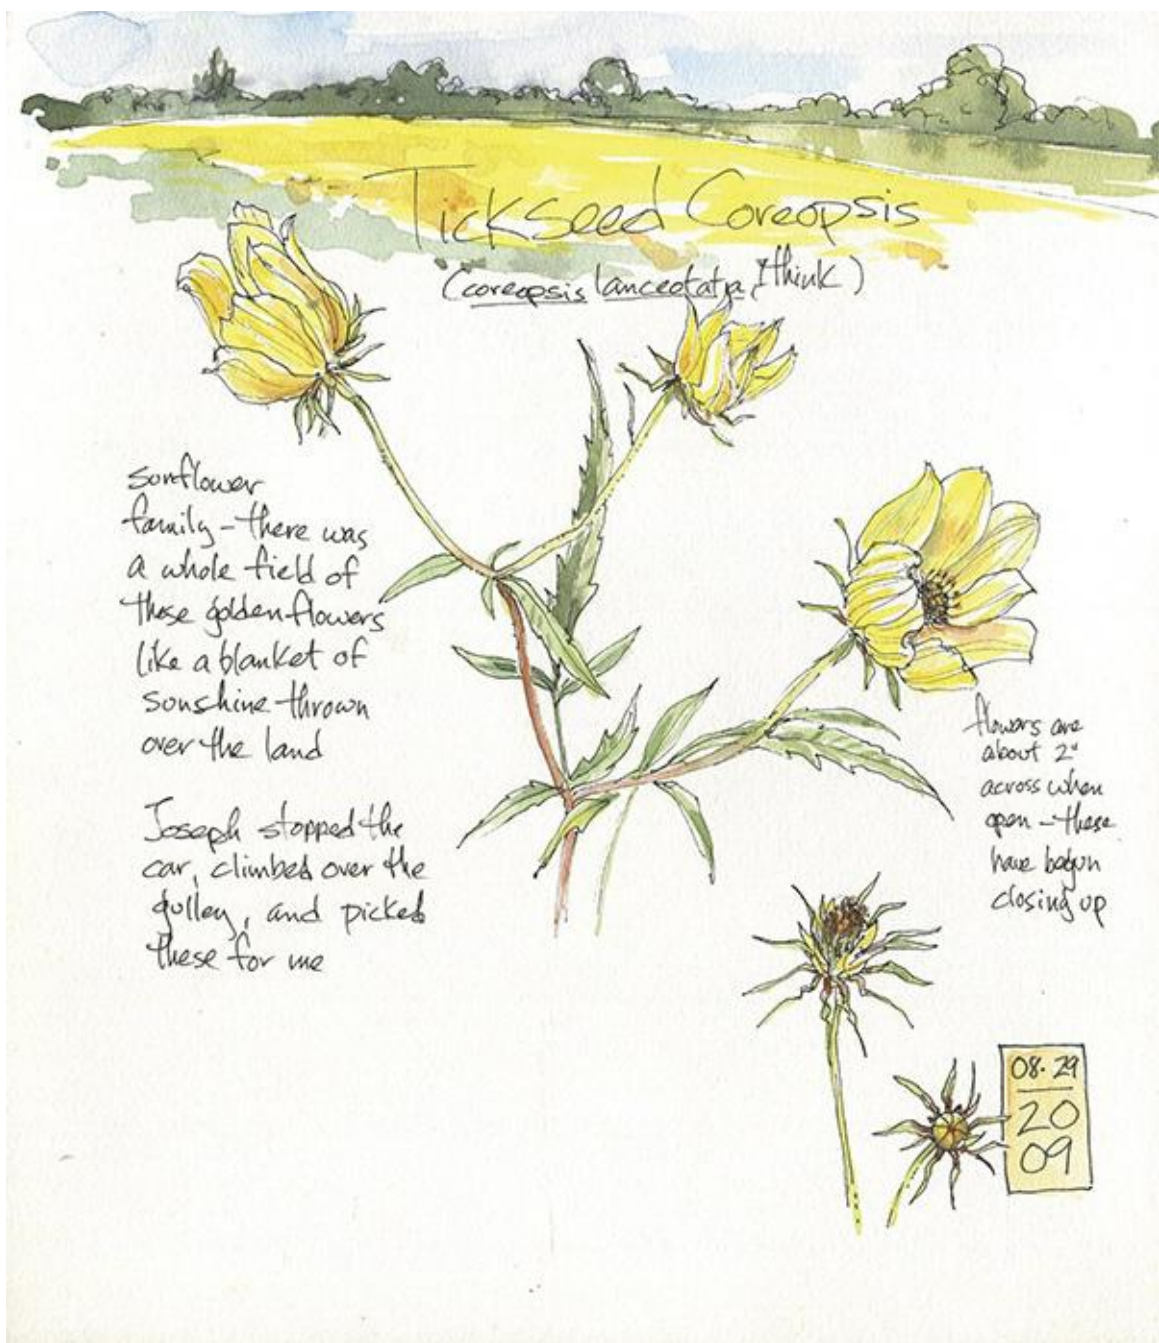 TickSeed Coreopsis
(coreopsis lanceotata, I think)
sunflower
family - there was
a whole field of
these golden flowers
like a blanket of
sunshine thrown
over the land
Joseph stopped the
car, climbed over the
gulley, and picked
these for me
flowers are
about 2"
across when
open - these
have begun
closing up
08.29
20
09